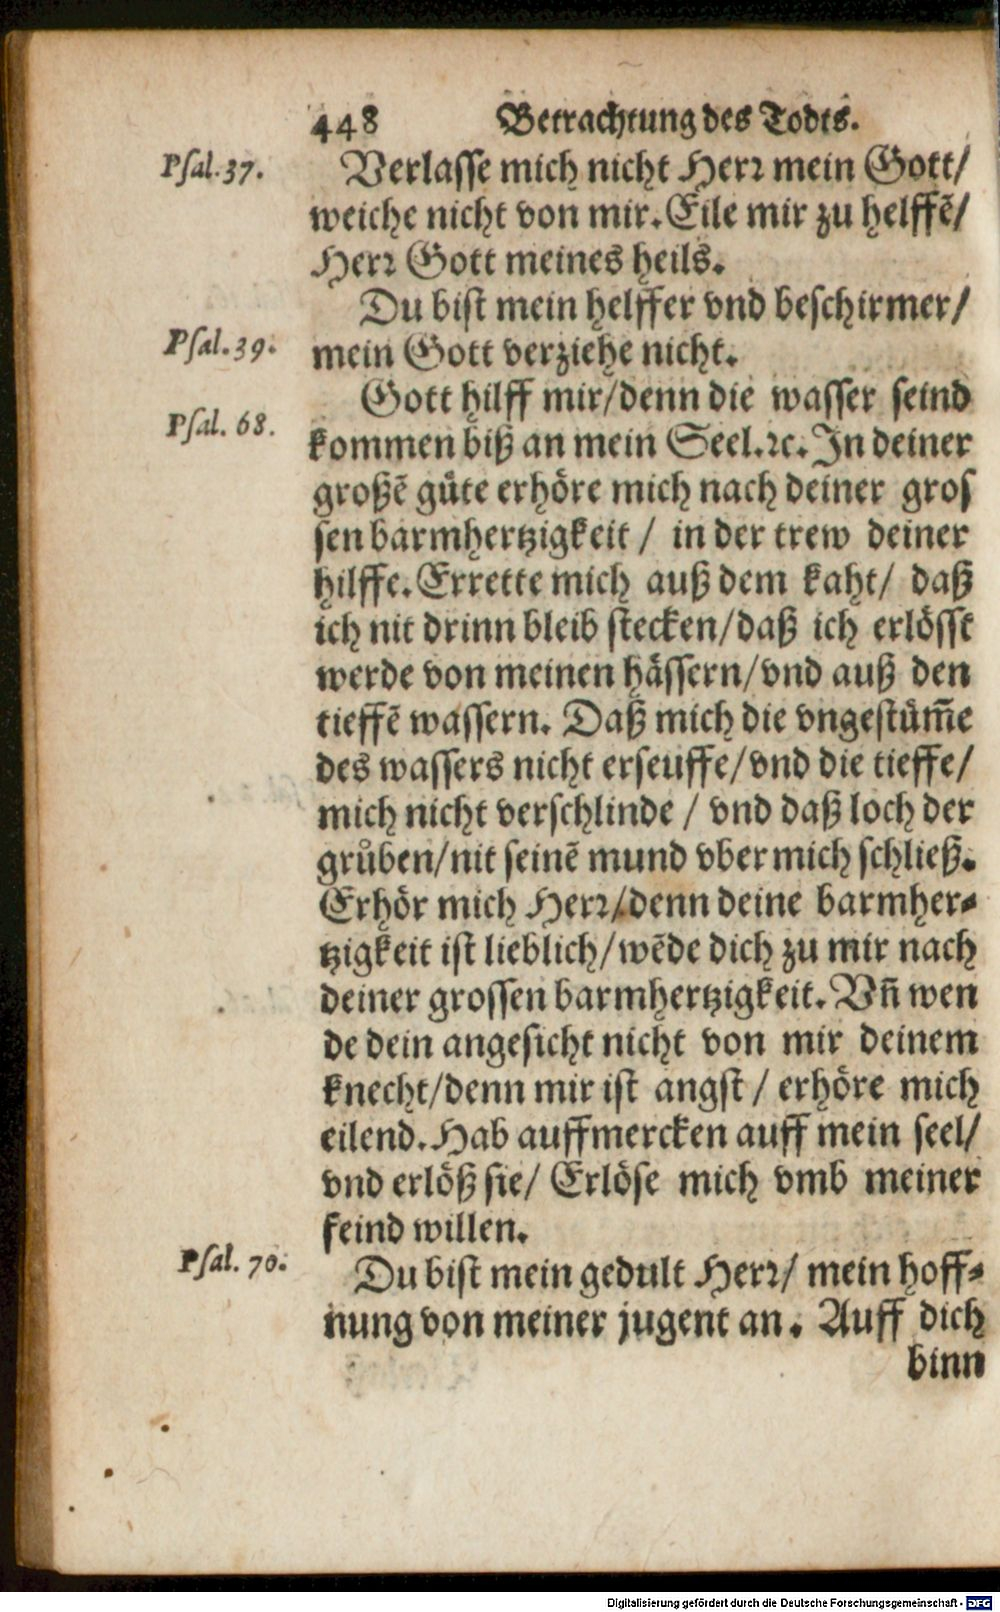 448 Betrachtung des Todts.
Psal. 37.
Verlasse mich nicht Herr mein Gott/
weiche nicht von mir. Eile mir zu helffẽ/
Herr Gott meines heils.
Du bist mein helffer vnd beschirmer/
Psal. 39.
mein Gott verziehe nicht.
Gott hilff mir/denn die wasser seind
Psal. 68.
kommen biß an mein Seel. ꝛc. In deiner
großẽ güte erhöre mich nach deiner gros
sen barmhertzigkeit / in der trew deiner
hilffe. Errette mich auß dem kaht/ daß
ich nit drinn bleib stecken/daß ich erlösst
werde von meinen hässern/vnd auß den
tieffẽ wassern. Daß mich die vngestüm̃e
des wassers nicht erseuffe/vnd die tieffe/
mich nicht verschlinde / vnd daß loch der
grůben/nit seinẽ mund vber mich schließ.
Erhör mich Herr/denn deine barmher⸗
tzigkeit ist lieblich/wẽde dich zu mir nach
deiner grossen barmhertzigkeit. Vñ wen
de dein angesicht nicht von mir deinem
knecht/denn mir ist angst / erhöre mich
eilend. Hab auffmercken auff mein seel/
vnd erlöß sie/ Erlöse mich vmb meiner
feind willen.
Psal. 70.
Du bist mein gedult Herr/ mein hoff⸗
nung von meiner jugent an. Auff dich
binn
Digitalisierung gefördert durch die Deutsche Forschungsgemeinschaft - DFG